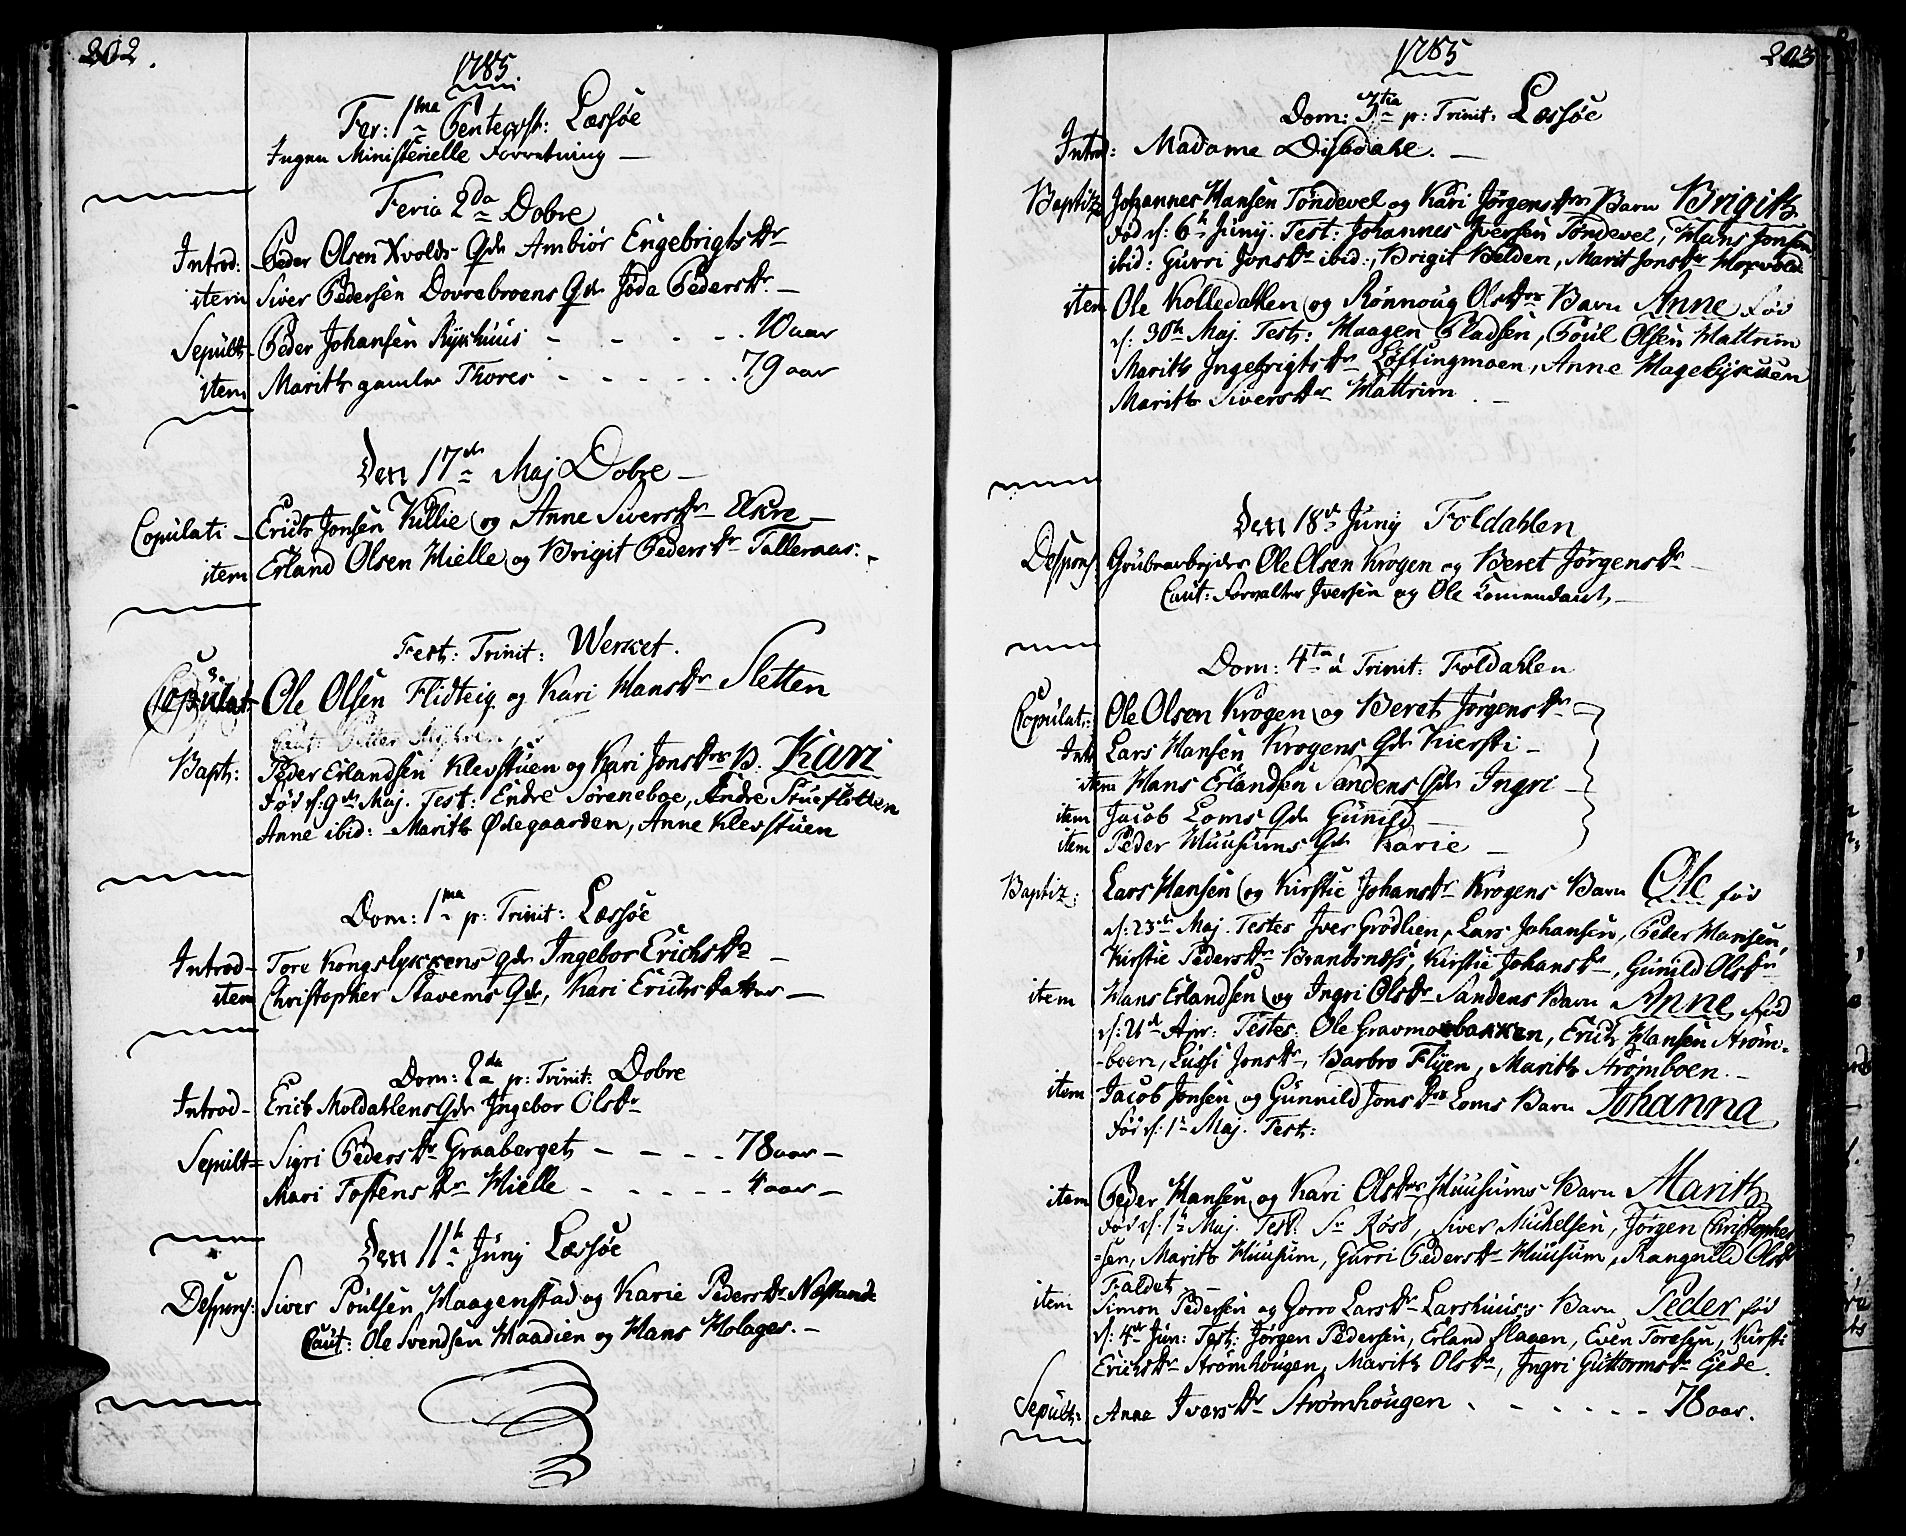 202.
1785.
Fer: 1ma Pentecost: Læssøe
Ingen Ministerielle Forretning —
Feria 2da Dobre
Introd: Peder Olsen Qde Ambiør Engebrigts Dr
item Siver Pedersen Dovrebroens Qde Jøda Peders Dr. —
Sepult: Peder Johansen Ryshuus - - - - 10 aar
item Marith gamle Thores - - - - - 79 aar
Den 17de Maj Dobre —
Copulati — Erich Jonsen Killie og Anne Sivers Dr Ekre —
item Erland Olsen Hielle og Brigit Peders Dr Talleraas. -
Fest: Trinit: Werket.
Copulat: Ole Olsen Flidteig og Kari Hans Dr Sletten
Caut: Peter
Bapt: Peder Erlandsen Klevstuen og Kari Jons Drs B. Kari
Fød d: 9de Maj. Test: Endre Søreneboe, Andre Stuefletten
Anne ibid: Marith Ødegaarden, Anne Klevstuen
Dom: 1ma p: Trinit: Læssøe
Introd — Tore Kongslykkens Qde Ingebor Erichs Dr —
item Christopher Stavems Qde, Kari Erichs datter —
Dom: 2da p: Trinit: Dobre
Introd — Erich Moldahlens Qde Ingebor Ols Dr
Sepult = Sigri Peders Dr Graaberget - - - - 78 aar —
Mari Tostens Dr Hielle - - - - - 4 aar —
Den 11te Junij Læssøe
Despons: Siver Poulsen Haagenstad og Karie Peders Dr Næstande
Caut: Ole Svendsen Haadien og Hans Holages. —
1785
203
Dom: 3tia p: Trinit: Læssøe
Introd: Madame —
Baptiz Johannes Hansen Tøndevel og Kari Jørgens Drs Barn Brigith
Fød d: 6te Junij. Test: Johannes Iversen Tøndevel, Hans Jonsen
ibid: Gurri Jons Dr ibid:, Brigit Belden, Marit Jons Dr
item Ole Kolledahlen og Rønnoug Ols Drs Barn Anne Fød
d: 30te Maj. Test: Haagen Pladsen, Poul Olsen Mattrim
Marith Ingebrigts Dr Løftingmoen, Anne Hagelykuen
Marith Sivers Dr Mattrim —
Den 18de Junij Foldahlen
Despons: Grubearbejder Ole Olsen Krogen og Beret Jørgens Dr —
Caut: Forvalter Iversen og Ole Komendant, —
Dom: 4ta á Trinit: Foldahlen
Copulat: Ole Olsen Krogen og Beret Jørgens Dr —
Intr Lars Hansen Krogens Qde Kiersti —
item Hans Erlandsen Sandens Qde Ingri —
item Jacob Loms Qde Gunild —
item Peder Huusums Qde Karie —
Baptiz: Lars Hansen og Kirstie Johans Dr Krogens Barn Ole fød
d: 23de Maj. Testes Iver Grødlien, Lars Johansen, Peder Hansen,
Kirstie Peders Dr Brandsnæss, Kirstie Johans Dr, Gunild Ols Dr
item Hans Erlandsen og Ingri Ols Dr Sandens Barn Anne fød
d: 21de Apr: Testes: Ole Gravmobakken, Erich Hansen Strøm-
-boen, Lussi Jons Dr, Barbro Flÿen, Marith Strømboen. —
item Jacob Jonsen og Gunnild Jons Drs Loms Barn Johanna
Fød d: 1te Maj. Test:
item Peder Hansen og Kari Ols Drs Huusums Barn Marith
Fød d: 1te Maj. Test. Sr Røst, Siver Michelsen, Jørgen Christophers
=sen, Marith Huusum, Gurri Peders Dr Huusum, Rangnild Ols Dr
Faldet —
item Simon Pedersen og Gorro Lars Dr Larshuus's Barn Peder fød
d: 4de Jun: Test: Jørgen Pedersen, Erland Slagen, Even Toresen, Kirsti
Erichs Dr Strømhougen, Marith Ols Dr, Ingri Guttorms Dr Giede.
Sepult: Anne Ivers Dr Strømhougen - - - - - - 78 aar.